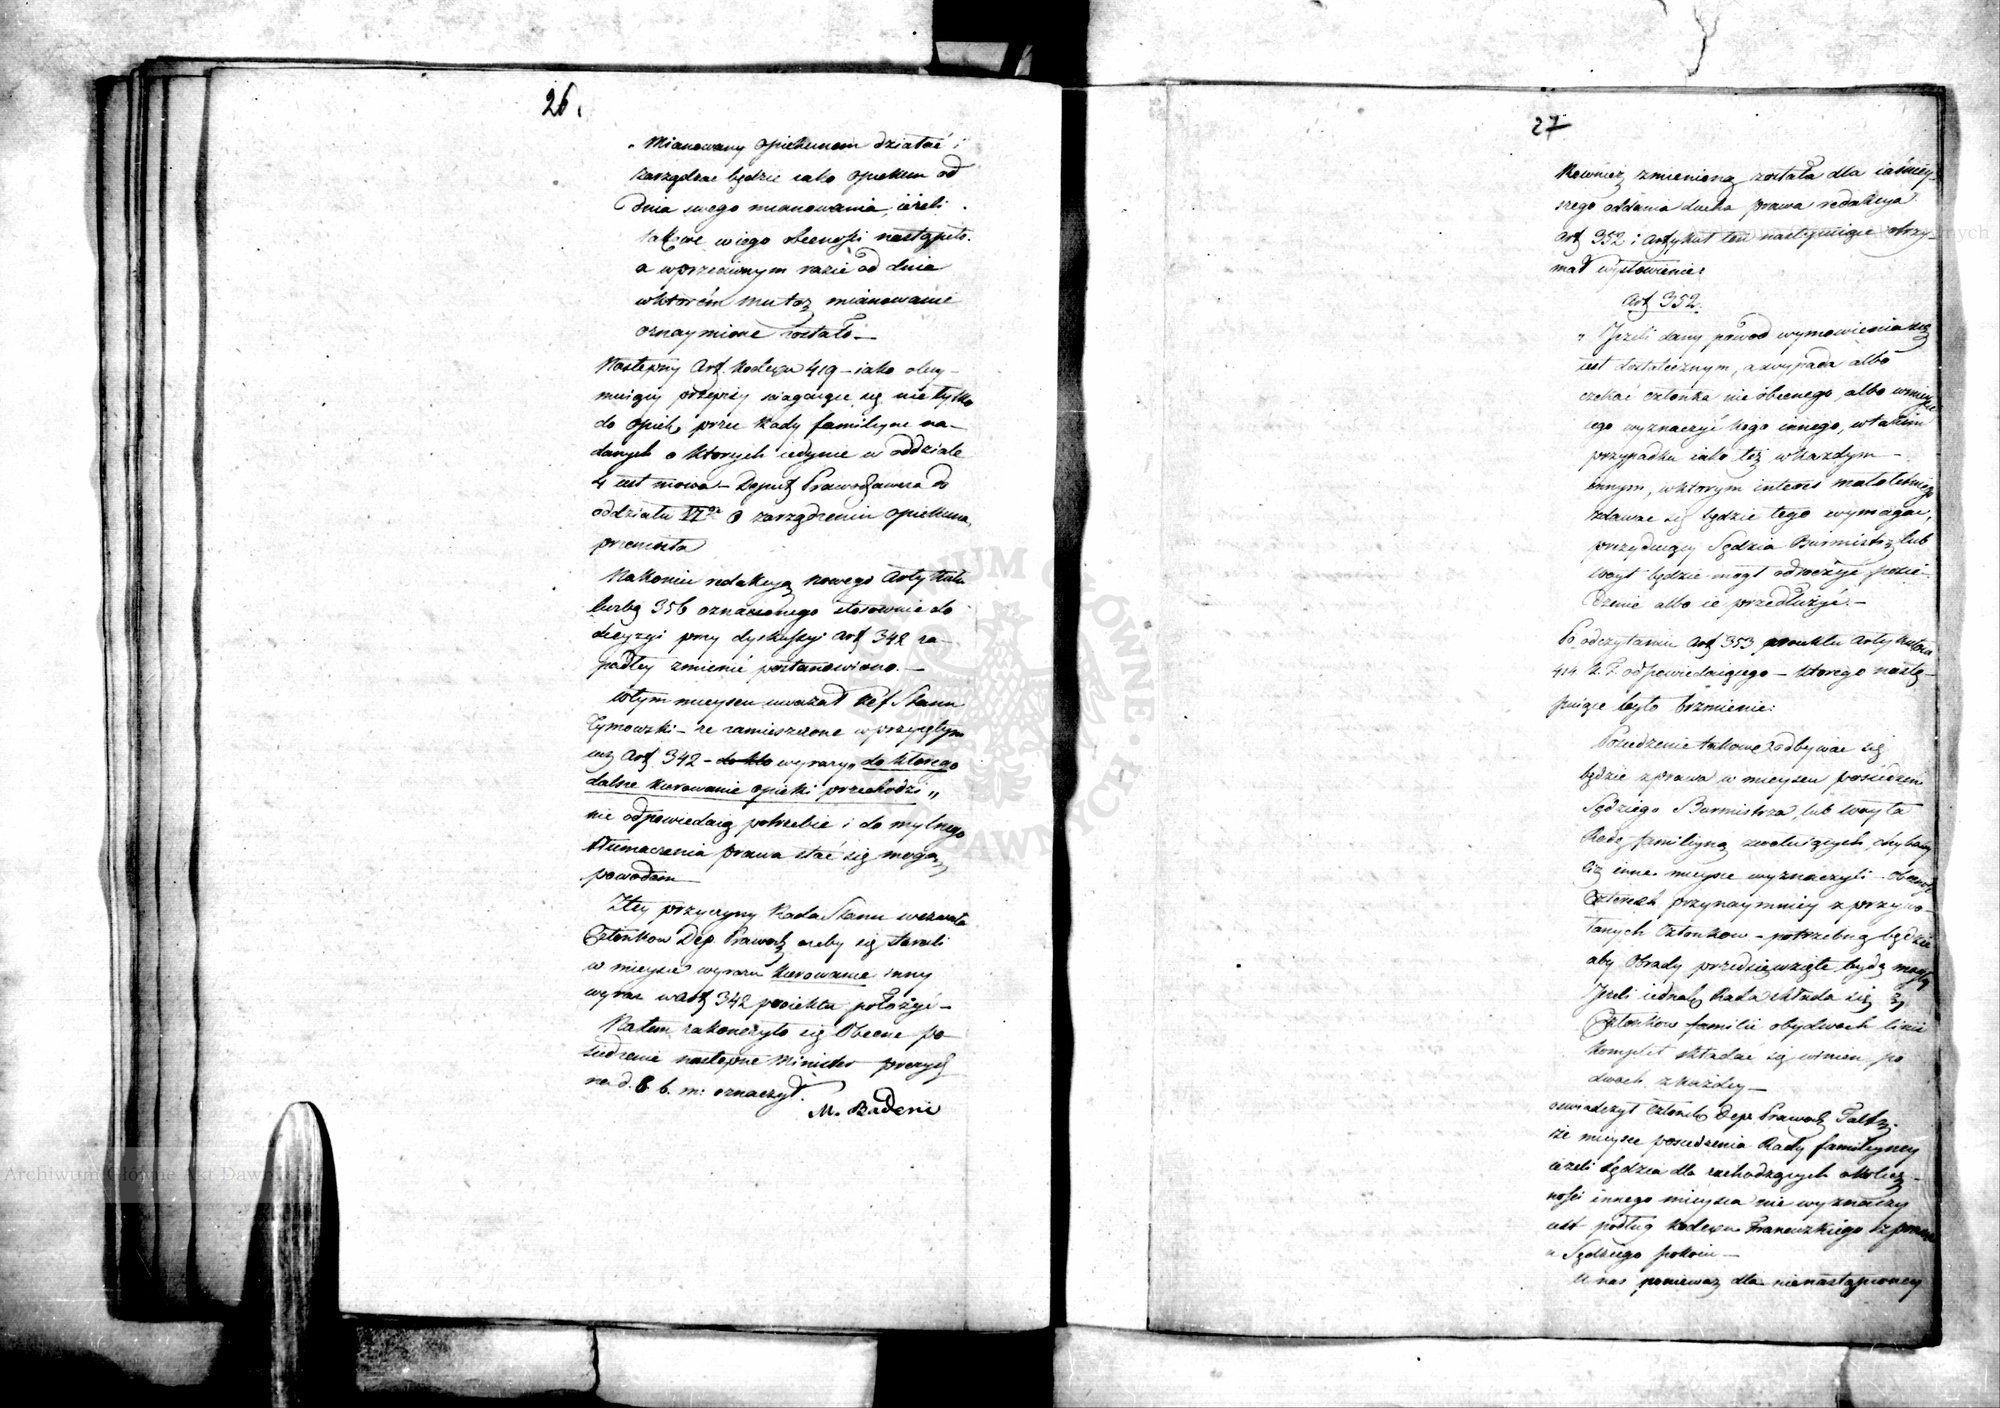 26.
„Mianowany opiekunem działać i
zarządzac będzie iako opiekun od
Dnia swego mianowania, ieżeli
takowe w iego obecności nastąpiło.
a wprzeciwnym razie od dnia
wktorém mu toż mianowanie
oznaymione zostało.—
Następny Art. Kodexu 419 – iako obey-
muiący przepisy sciągaiące się nie tylko
do opiek, przez Rady familyine na-
danych o ktorych iedynie w oddziale
4 iest mowa – Deput. Prawodawcza do
oddziału VIgo O zarządzeniu opiekuna,
przeniosła
Nakoniec redakcyą nowego Artykułu
liczbą 356 oznaczonego stosownie do
decyzyi przy dyskussyi Art 342 za-
padłey zmienić postanowiono.—
Wtym mieyscu uważał Ref Stanu
Tymowski – że zamieszczone wprzyiętym
iuż Art 342 – do kto wyrazy „do którego
dalsze kierowanie opieki przechodzi„
nie odpowiedaią potrzebie i do mylnego
tłumaczenia prawa stać się mogą
powodem—
Ztey przyczyny Rada Stanu wezwała
Członkow Dep. Prawod. ażeby się starali
w mieysce wyrazu kierowanie inny
wyraz w Art 342 proiektu położyć—
Natem zakończyło się Obecne po-
siedzenie następne Minister prezyd.
na d. 8 b. m: oznaczył.
M. Badeni
27
Rownież zmienioną została dla iaśniey-
szego oddania ducha prawa redakcya
Art 352 i Artykuł ten następuiące otrzy-
mał wysłowienie:
Art 352.
„Jeżeli dany powod wymowienia się
iest dostatecznym, a wypada albo
czekać członka nieobecnego, albo wmieysce
iego wyznaczyć kogo innego, wtakim
przypadku iako też wkażdym
innym, wktorym interes małoletniego
zdawac się będzie tego wymagac,
prezyduiący Sędzia Burmistrz lub
Woyt będzie mogł odroczyć posie-
dzenie albo ie przedłużyć.—
Po odczytaniu Art 353 proiektu Artykułowi
414 K. F. odpowiedaiącego – ktorego nastę-
puiące było brzmienie:
Posiedzenie takowe odbywac się
będzie zprawa w mieyscu posiedzeń
Sędziego Burmistrza, lub Woyta
Radę familyiną zwołuiących, chybaby
ciż inne mieysce wyznaczyli – Obecność
Czterech przynaymniey z przywo-
łanych Członkow – potrzebną będzie
aby Obrady przedsięwzięte bydź mogły
Jeżeli iednak Rada składa się z
Członkow familii obydwoch linii
komplet składać się winien po
dwoch z każdey—
oswiadczył Członek Dep: Prawod.
że mieysce posiedzenia Rady familyiney
ieżeli Sędzia dla zachodzących okolicz-
ności innego mieysca nie wyznaczy
iest podług Kodexu Francuzkiego zprawa
u Sędziego pokoiu—
U nas ponieważ dla nienastąpioney